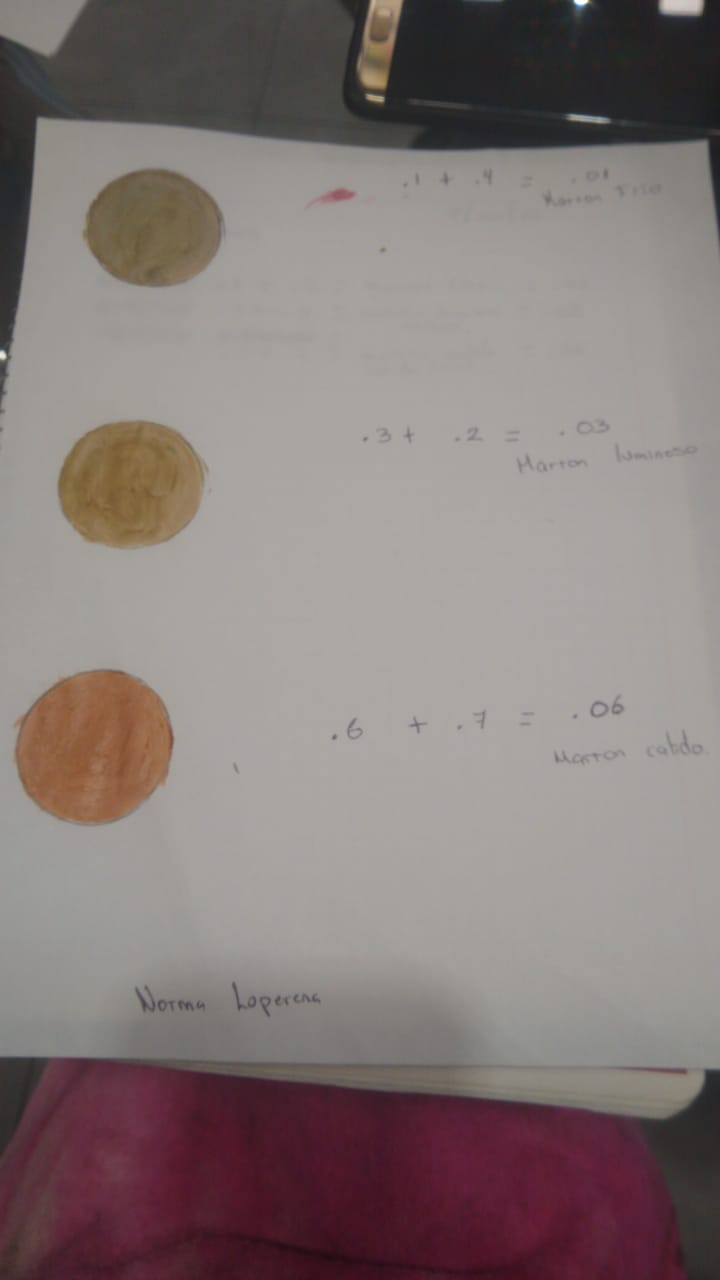 .1 + .4 = .01
Marron Frio
.3 + .2 = .03
Marron luminoso
.6 + .7 = .06
Marron calido.
Norma Loperena